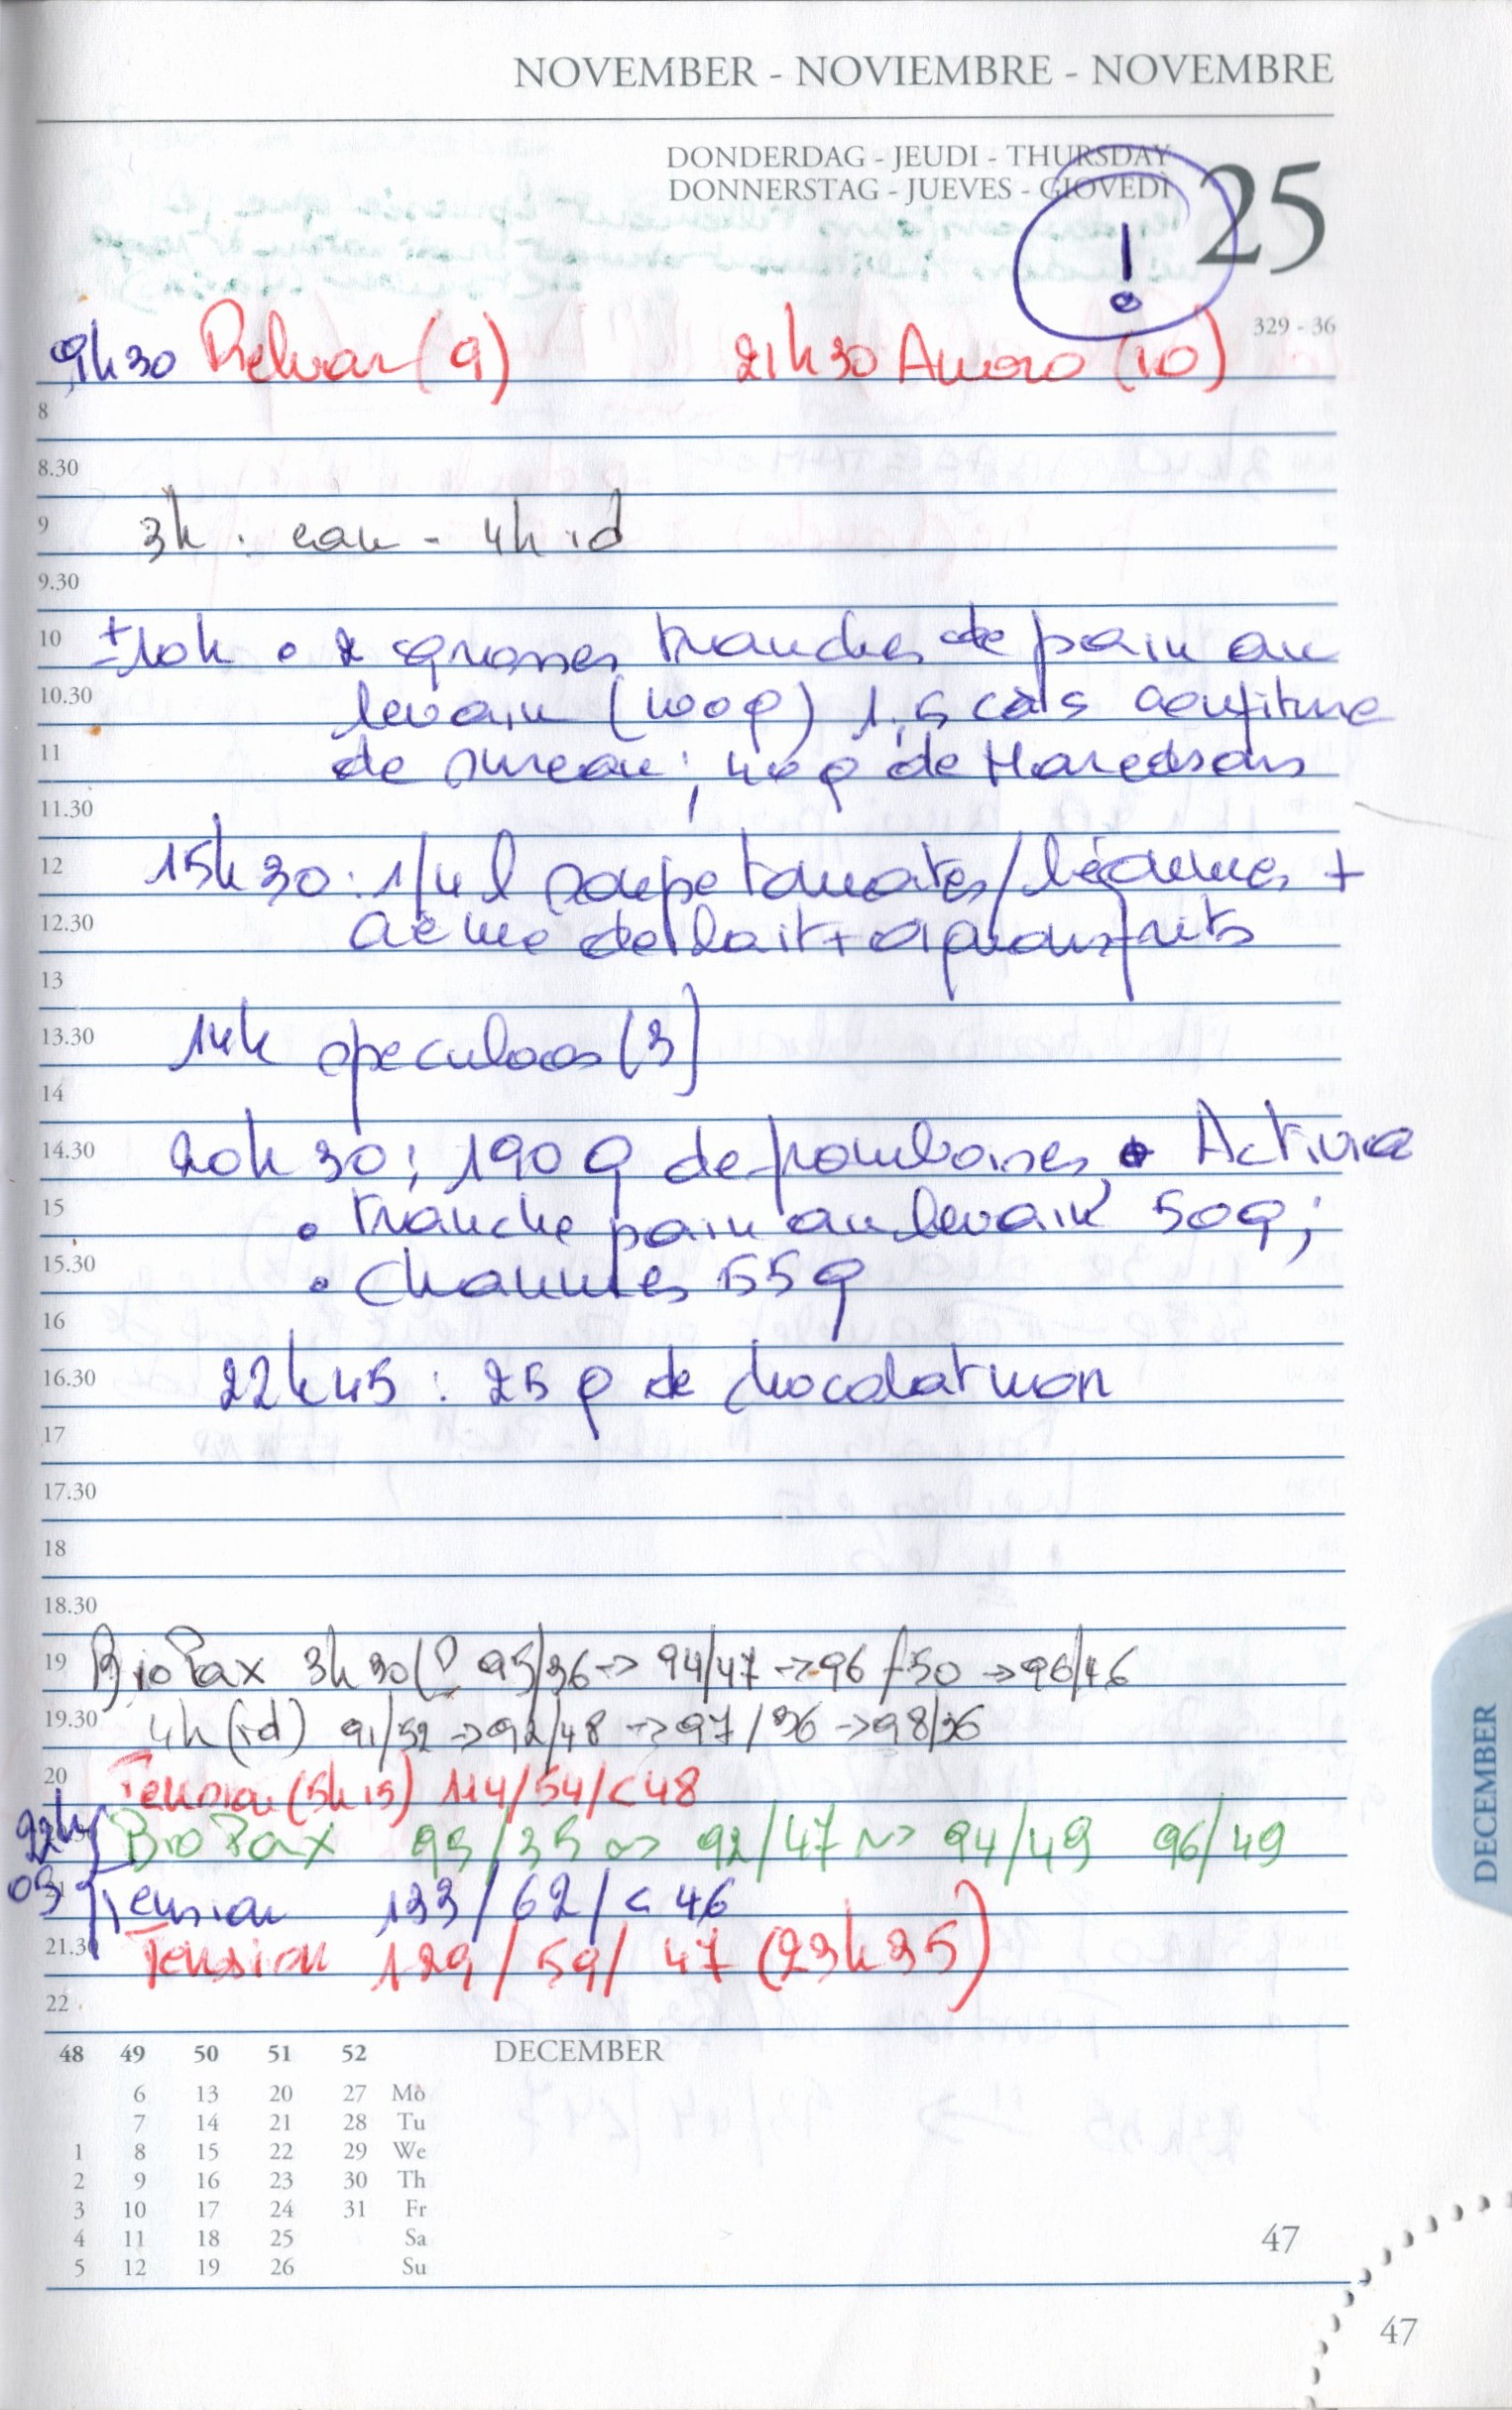 NOVEMBER - NOVIEMBRE - NOVEMBRE
DONDERDAG - JEUDI - THURSDAY
DONNERSTAG - JUEVES - GIOVEDÌ
25
!
329 - 36
9h30 Relvar (9) 21h30 (10)
8
8.30
9 3h : eau - 4h id
9.30
10 ±10h • 2 grosses tranches de pain au
10.30 levain (100g) 1,5 càs confiture
11 de sureau ; 40g de Maredsous
11.30
12 15h30 : 1/4 l soupe tomates/légumes +
12.30 crème de lait + oignons frits
13
13.30 14h speculoos (3)
14
14.30 20h30 ; 190g de framboises • Activia
15 • tranche pain au levain 50g ;
15.30 • Chaumes 55g
16
16.30 22h45 : 25g de chocolat noir
17
17.30
18
18.30
19 3h30 95/36 -> 94/47 -> 96/50 -> 96/46
19.30 4h (id) 91/52 -> 92/48 -> 97/36 -> 98/36
20 Tension (5h15) 114/54/<48
22h 95/35 ~> 92/47 ~> 94/49 96/49
03 21 Tension 133/62/<46
21.30 Tension 129/59/47 (23h35)
22
48 49 50 51 52 DECEMBER
6 13 20 27 Mo
7 14 21 28 Tu
1 8 15 22 29 We
2 9 16 23 30 Th
3 10 17 24 31 Fr
4 11 18 25 Sa
5 12 19 26 Su
47
47
DECEMBER